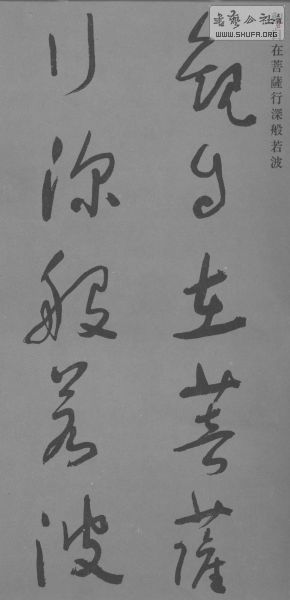 在菩薩行深般若波
書藝公社
WWW.SHUFA.ORG
觀自在菩薩
行深般若波